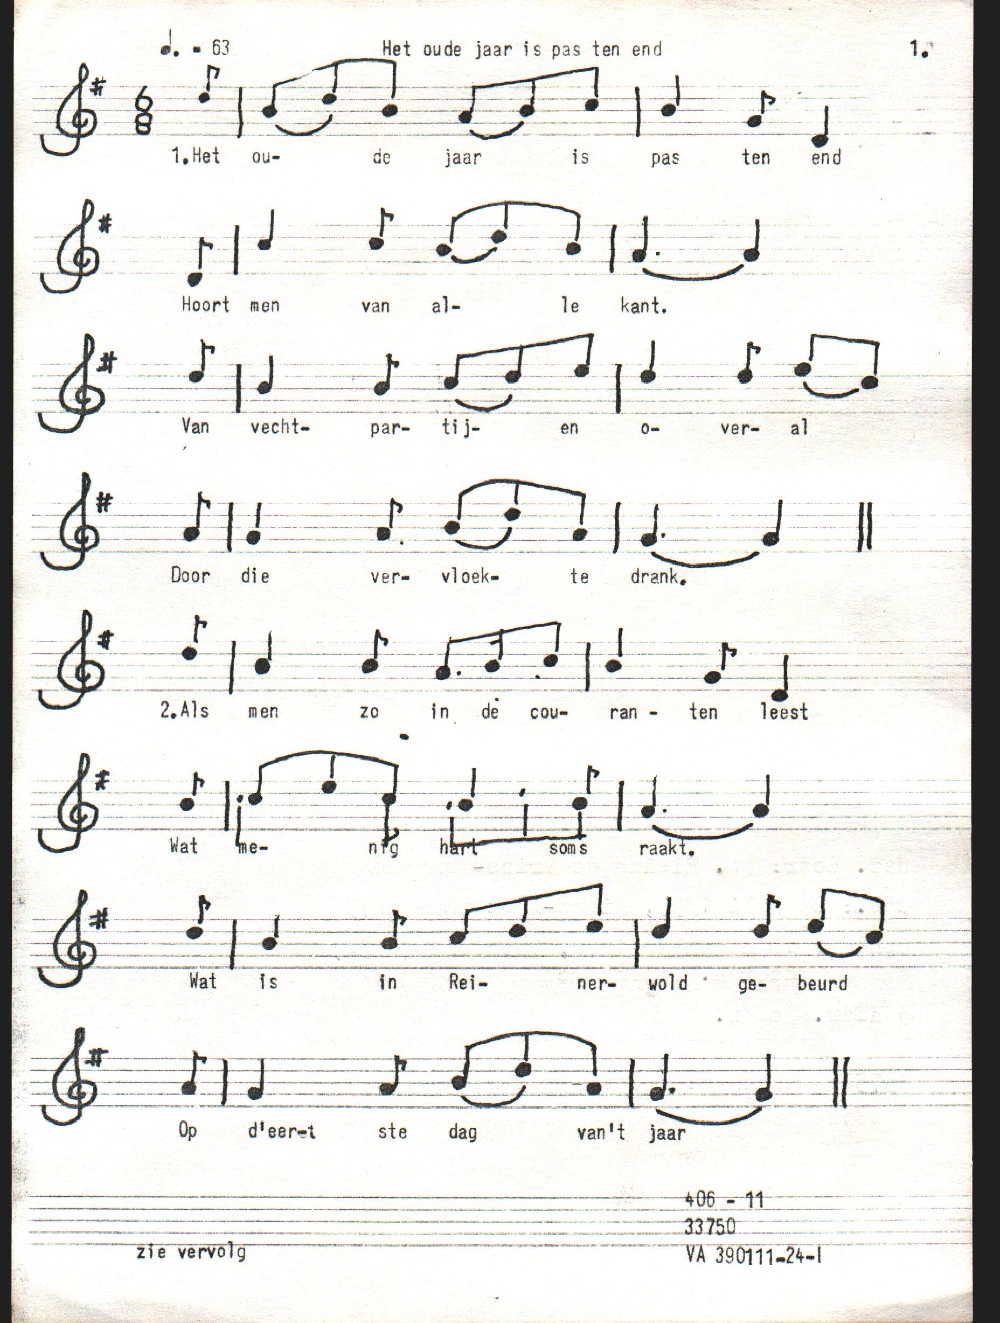 ♩. = 63 Het oude jaar is pas ten end 1.
6
8
1.Het ou- de jaar is pas ten end
Hoort men van al- le kant.
Van vecht- par- tij- en o- ver- al
Door die ver- vloek- te drank.
2.Als men zo in de cou- ran - ten leest
Wat me- nig hart soms raakt.
Wat is in Rei- ner- wold ge- beurd
Op d'eer-t ste dag van't jaar
406 - 11
33750
zie vervolg VA 390111-24-I